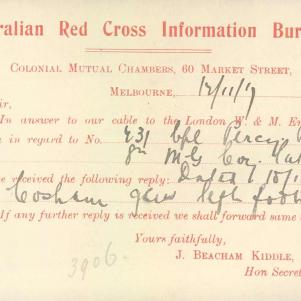 ralian Red Cross Information Bur
COLONIAL MUTUAL CHAMBERS, 60 MARKET STREET,
MELBOURNE, 12/11/17
ir,
In answer to our cable to the London W. & M. En
n in regard to No. 431 Cpl Percy
M G Co
e received the following reply: Dated 10/1
Cosham
If any further reply is received we shall forward same
Yours faithfully,
J. BEACHAM KIDDLE,
Hon Secret
3906.